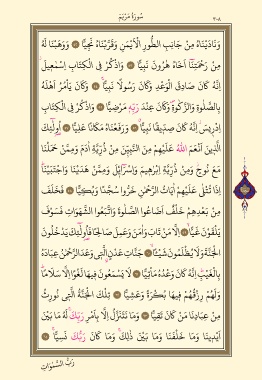 سُورَةُ مَرْيَمَ
٣٠٨
وَنَادَيْنَاهُ مِنْ جَانِبِ الطُّورِ الْاَيْمَنِ وَقَرَّبْنَاهُ نَجِيًّا ۝ وَوَهَبْنَا لَهُ
مِنْ رَحْمَتِنَا اَخَاهُ هٰرُونَ نَبِيًّا ۝ وَاذْكُرْ فِي الْكِتَابِ اِسْمٰعِيلَ
اِنَّهُ كَانَ صَادِقَ الْوَعْدِ وَكَانَ رَسُولًا نَبِيًّا ۝ وَكَانَ يَأْمُرُ اَهْلَهُ
بِالصَّلٰوةِ وَالزَّكٰوةِ وَكَانَ عِنْدَ رَبِّهِ مَرْضِيًّا ۝ وَاذْكُرْ فِي الْكِتَابِ
اِدْرِيسَ اِنَّهُ كَانَ صِدِّيقًا نَبِيًّا ۝ وَرَفَعْنَاهُ مَكَانًا عَلِيًّا ۝ اُولٰئِكَ
الَّذِينَ اَنْعَمَ اللّٰهُ عَلَيْهِمْ مِنَ النَّبِيِّنَ مِنْ ذُرِّيَّةِ اٰدَمَ وَمِمَّنْ حَمَلْنَا
مَعَ نُوحٍ وَمِنْ ذُرِّيَّةِ اِبْرٰهِيمَ وَاِسْرَائِلَ وَمِمَّنْ هَدَيْنَا وَاجْتَبَيْنَا
اِذَا تُتْلٰى عَلَيْهِمْ اٰيَاتُ الرَّحْمٰنِ خَرُّوا سُجَّدًا وَبُكِيًّا ۝ فَخَلَفَ
مِنْ بَعْدِهِمْ خَلْفٌ اَضَاعُوا الصَّلٰوةَ وَاتَّبَعُوا الشَّهَوَاتِ فَسَوْفَ
يَلْقَوْنَ غَيًّا ۝ اِلَّا مَنْ تَابَ وَاٰمَنَ وَعَمِلَ صَالِحًا فَاُولٰئِكَ يَدْخُلُونَ
الْجَنَّةَ وَلَا يُظْلَمُونَ شَيْـًٔا ۝ جَنَّاتِ عَدْنٍ الَّتِي وَعَدَ الرَّحْمٰنُ عِبَادَهُ
بِالْغَيْبِ اِنَّهُ كَانَ وَعْدُهُ مَأْتِيًّا ۝ لَا يَسْمَعُونَ فِيهَا لَغْوًا اِلَّا سَلَامًا
وَلَهُمْ رِزْقُهُمْ فِيهَا بُكْرَةً وَعَشِيًّا ۝ تِلْكَ الْجَنَّةُ الَّتِي نُورِثُ
مِنْ عِبَادِنَا مَنْ كَانَ تَقِيًّا ۝ وَمَا نَتَنَزَّلُ اِلَّا بِاَمْرِ رَبِّكَ لَهُ مَا بَيْنَ
اَيْدِينَا وَمَا خَلْفَنَا وَمَا بَيْنَ ذٰلِكَ وَمَا كَانَ رَبُّكَ نَسِيًّا ۝
رَبُّ السَّمٰوَاتِ